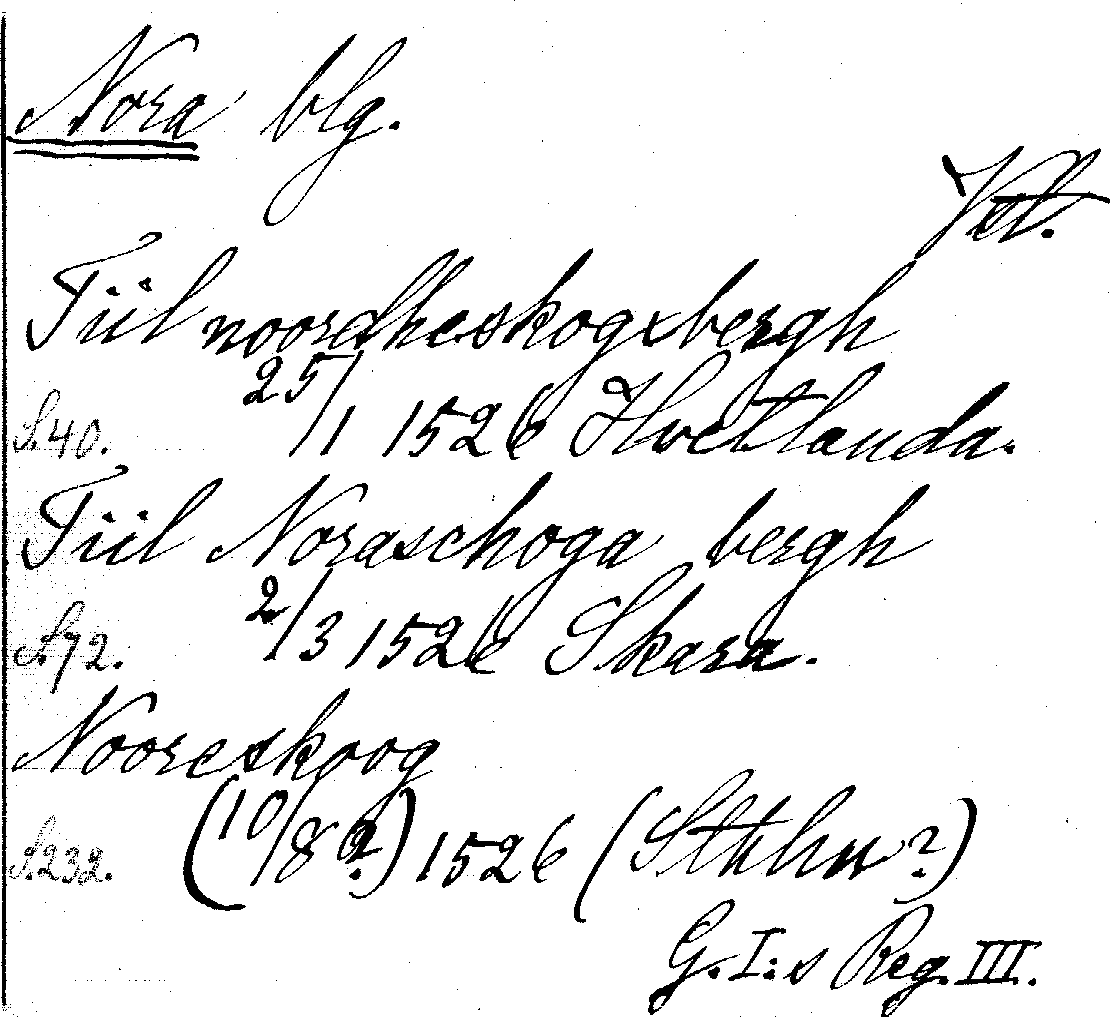 Nora blg.
Vstl.
Tiil noordheskogxbergh
S. 40. 25/1 1526 Hvetlanda.
Tiil Noraschoga bergh
S. 72. 2/3 1526 Skara.
Nooreskoog
S. 232. (10/8 ?) 1526 (Sthlm?)
G. I:s Reg. III.